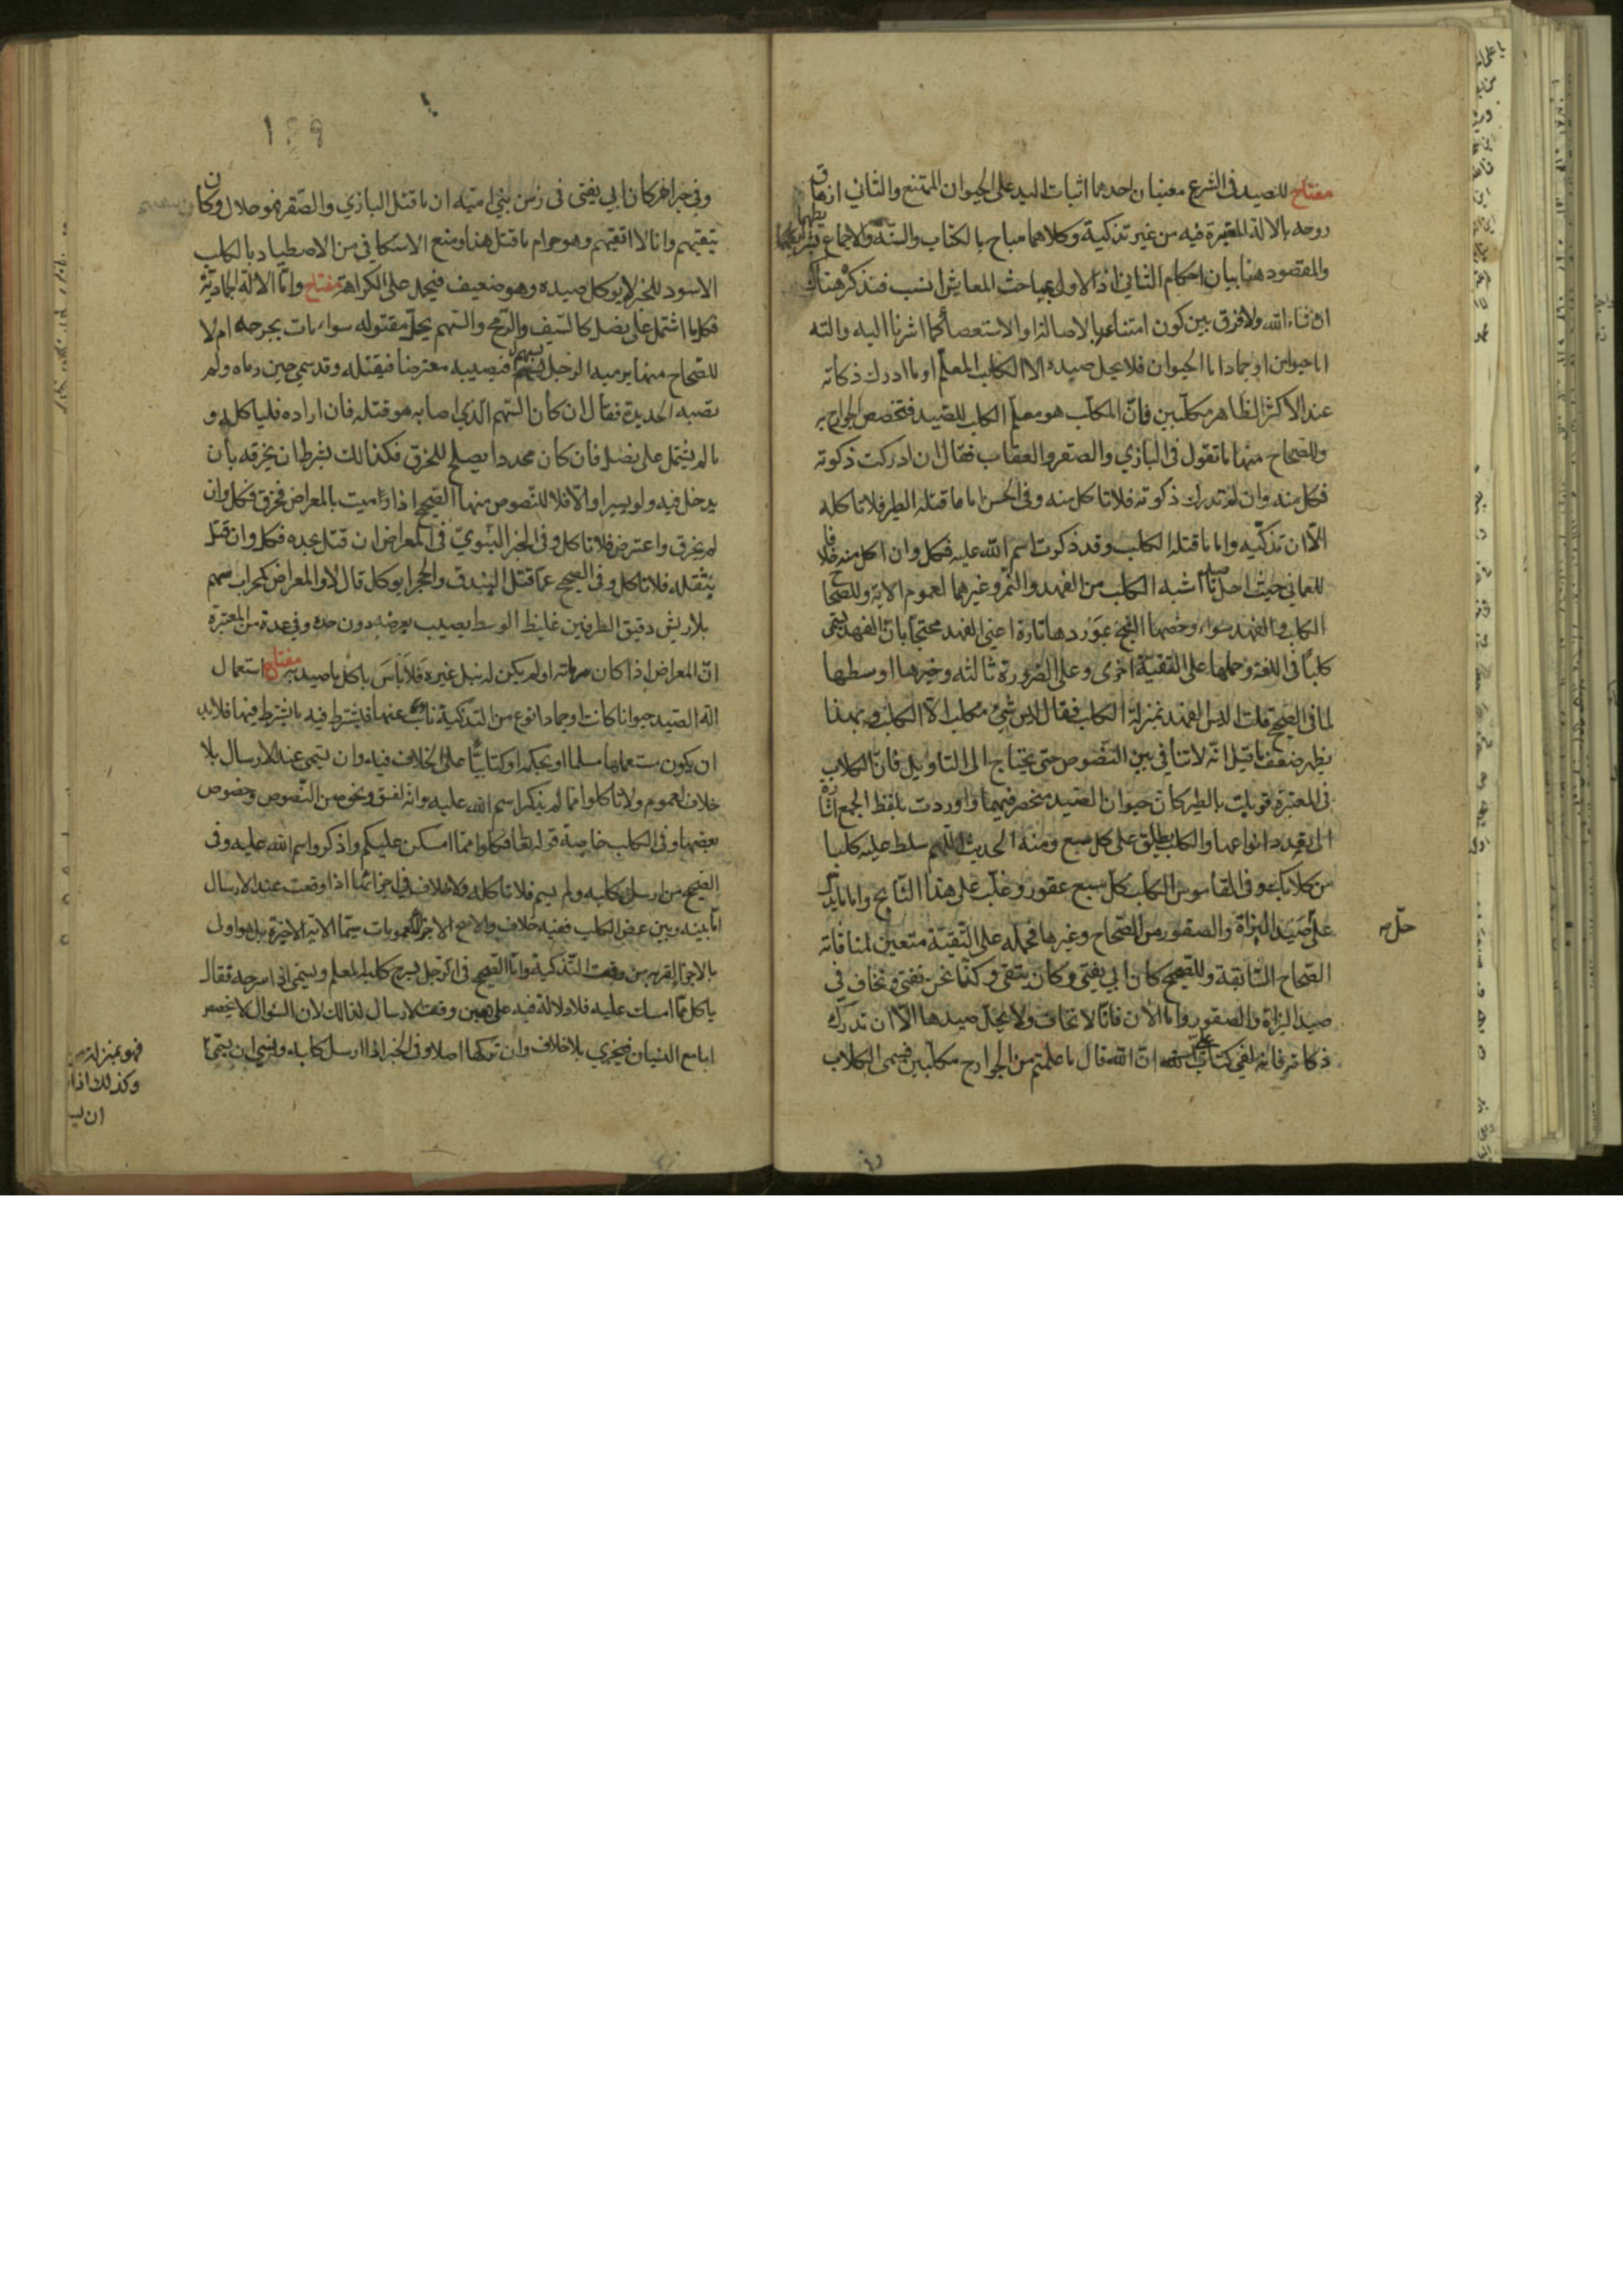 مفتاح للصيد فى الشرع معنيان احدهما اثبات اليد على الحيوان الممتنع والثاني ازهاق
روحه بالالة المعتبرة فيه من غير تذكية وكلاهما مباح بالكتاب والسنة والاجماع
والمقصود هنا بيان احكام الثاني اذ الاول بمباحث المعايش انسب فتذكر هناك
ان شاء الله ولا فرق بين كون امتناعه بالاصالة او الاستعصاء كما اشرنا اليه والته
اما حيوان او جماد اما الحيوان فلا يحل صيده الا الكلب المعلم او ما ادرك ذكاته
عند الاكثر لظاهر مكلبين فان المكلب هو معلم الكلب للصيد فتخصص الجوارح به
وللصحاح منها ما تقول فى البازي والصقر والعقاب فقال ان ادركت ذكوته
فكل منه وان لم تدرك ذكوته فلا تاكل منه وفى الحسن اما ما قتله الطير فلا تاكله
الا ان تذكيه واما ما قتله الكلب وقد ذكرت اسم الله عليه فكل وان اكل منه خلافا
للعماني حيث احل صيد ما اشبه الكلب من الفهد والنمر وغيرهما لعموم الاية وللصحاح
الكلب والفهد سواء وخصها الشيخ بموردها تارة اعني الفهد محتجا بان الفهد يسمى
كلبا فى اللغة وحملها على التقية اخرى وعلى الضرورة ثالثة وخيرها اوسطها
لما فى الصحيح قلت اليس الفهد بمنزلة الكلب فقال ليس شئ مكلب الا الكلب وبهذا
يظهر ضعف ما قيل انه لا تنافي بين النصوص حتى يحتاج الى التاويل فان الكلاب
فى المعتبرة قوبلت بالطير كان حيوان الصيد منحصر فيهما واوردت بلفظ الجمع اشارة
الى تعدد انواعها والكلب يطلق على كل سبع ومنه الحديث اللهم سلط عليه كلبا
من كلابك وفى القاموس الكلب كل سبع عقور وغلب على هذا النابح واما ما يدل
على حل صيد البزاة والصقور من الصحاح وغيرها فحمله على التقية متعين لمنافاته
الصحاح السابقة وللصحيح كان ابي يفتي وكان يتقى وكنا نحن نفتي ونخاف فى
صيد البزاة والصقور واما الان فانا لا نخاف ولا يحل صيدها الا ان تدرك
ذكاته فانه لفي كتاب على ان الله قال ما علمتم من الجوارح مكلبين فسمى الكلاب
وفى خبر اخر كان ابي يفتى فى زمن بني امية ان ما قتل البازي والصقر فهو حلال وكان
يتقيهم وانا لا اتقيهم وهو حرام ما قتل هذا ومنع الاسكافي من الاصطياد بالكلب
الاسود للخبر لا يوكل صيده وهو ضعيف فيحمل على الكراهة مفتاح واما الالة الجمادية
فكلما اشتمل على نصل كالسيف والرمح والسهم يحل مقتوله سواء مات بجرحه ام لا
للصحاح منها يرميه الرجل بسهم فيصيبه معترضا فيقتله وقد سمى حين رماه ولم
تصبه الحديدة فقال ان كان السهم الذي اصابه هو قتله فان اراده فلياكله و
ما لم يشتمل على نصل فان كان محددا يصلح للخرق فكذالك بشرط ان يخرقه بأن
يدخل فيه ولو يسيرا والا فلا للنصوص منها الصحيح اذا رميت بالمعراض فخرق فكل وان
لم يخرق واعترض فلا تاكل وفى الخبر النبوي فى المعراض ان قتل بحده فكل وان قتل
بثقله فلا تاكل وفى الصحيح عما قتل البندق والحجر ايوكل قال لا والمعراض كمحراب سهم
بلا ريش دقيق الطرفين غليظ الوسط يصيب بعرضه دون حده وفى عدة من المعتبرة
ان المعراض اذا كان مرماته او لم يكن له نبل غيره فلا باس باكل ما صيد به مفتاح استعمال
الة الصيد حيوانا كانت او جمادا نوع من التذكية عنها فيشترط فيه ما يشترط فيها فلابد
ان يكون مستعملها مسلما او بحكمه او كتابيا على الخلاف فيه وان يسمى عند الارسال بلا
خلاف لعموم ولا تاكلوا مما لم يذكر اسم الله عليه وانه لفسق ونحوه من النصوص وخصوص
بعضها وفى الكلب خاصة قوله تعا فكلوا مما امسكن عليكم واذكروا اسم الله عليه وفى
الصحيح من ارسل كلبه ولم يسم فلا تاكله ولا خلاف فى اجزائها اذا وقعت عند الارسال
اما بينه وبين عض الكلب ففيه خلاف والاصح الاجزاء للعمومات سيما الاية الاخيرة بل هو اولى
بالاجزاء لقربه من وقت التذكية واما الصحيح فى الرجل يسرح كلبه المعلم ويسمى اذا سرحه فقال
ياكل مما امسك عليه فلا دلالة فيه على تعين وقت الارسال لذالك لان السؤال لا يخصص
اما مع النسيان فيجزي بلا خلاف وان تركها اصلا وفى الخبر اذا ارسل كلبه ونسى ان يسمى
حل صح
فهو بمنزلة من
وكذلك اذا